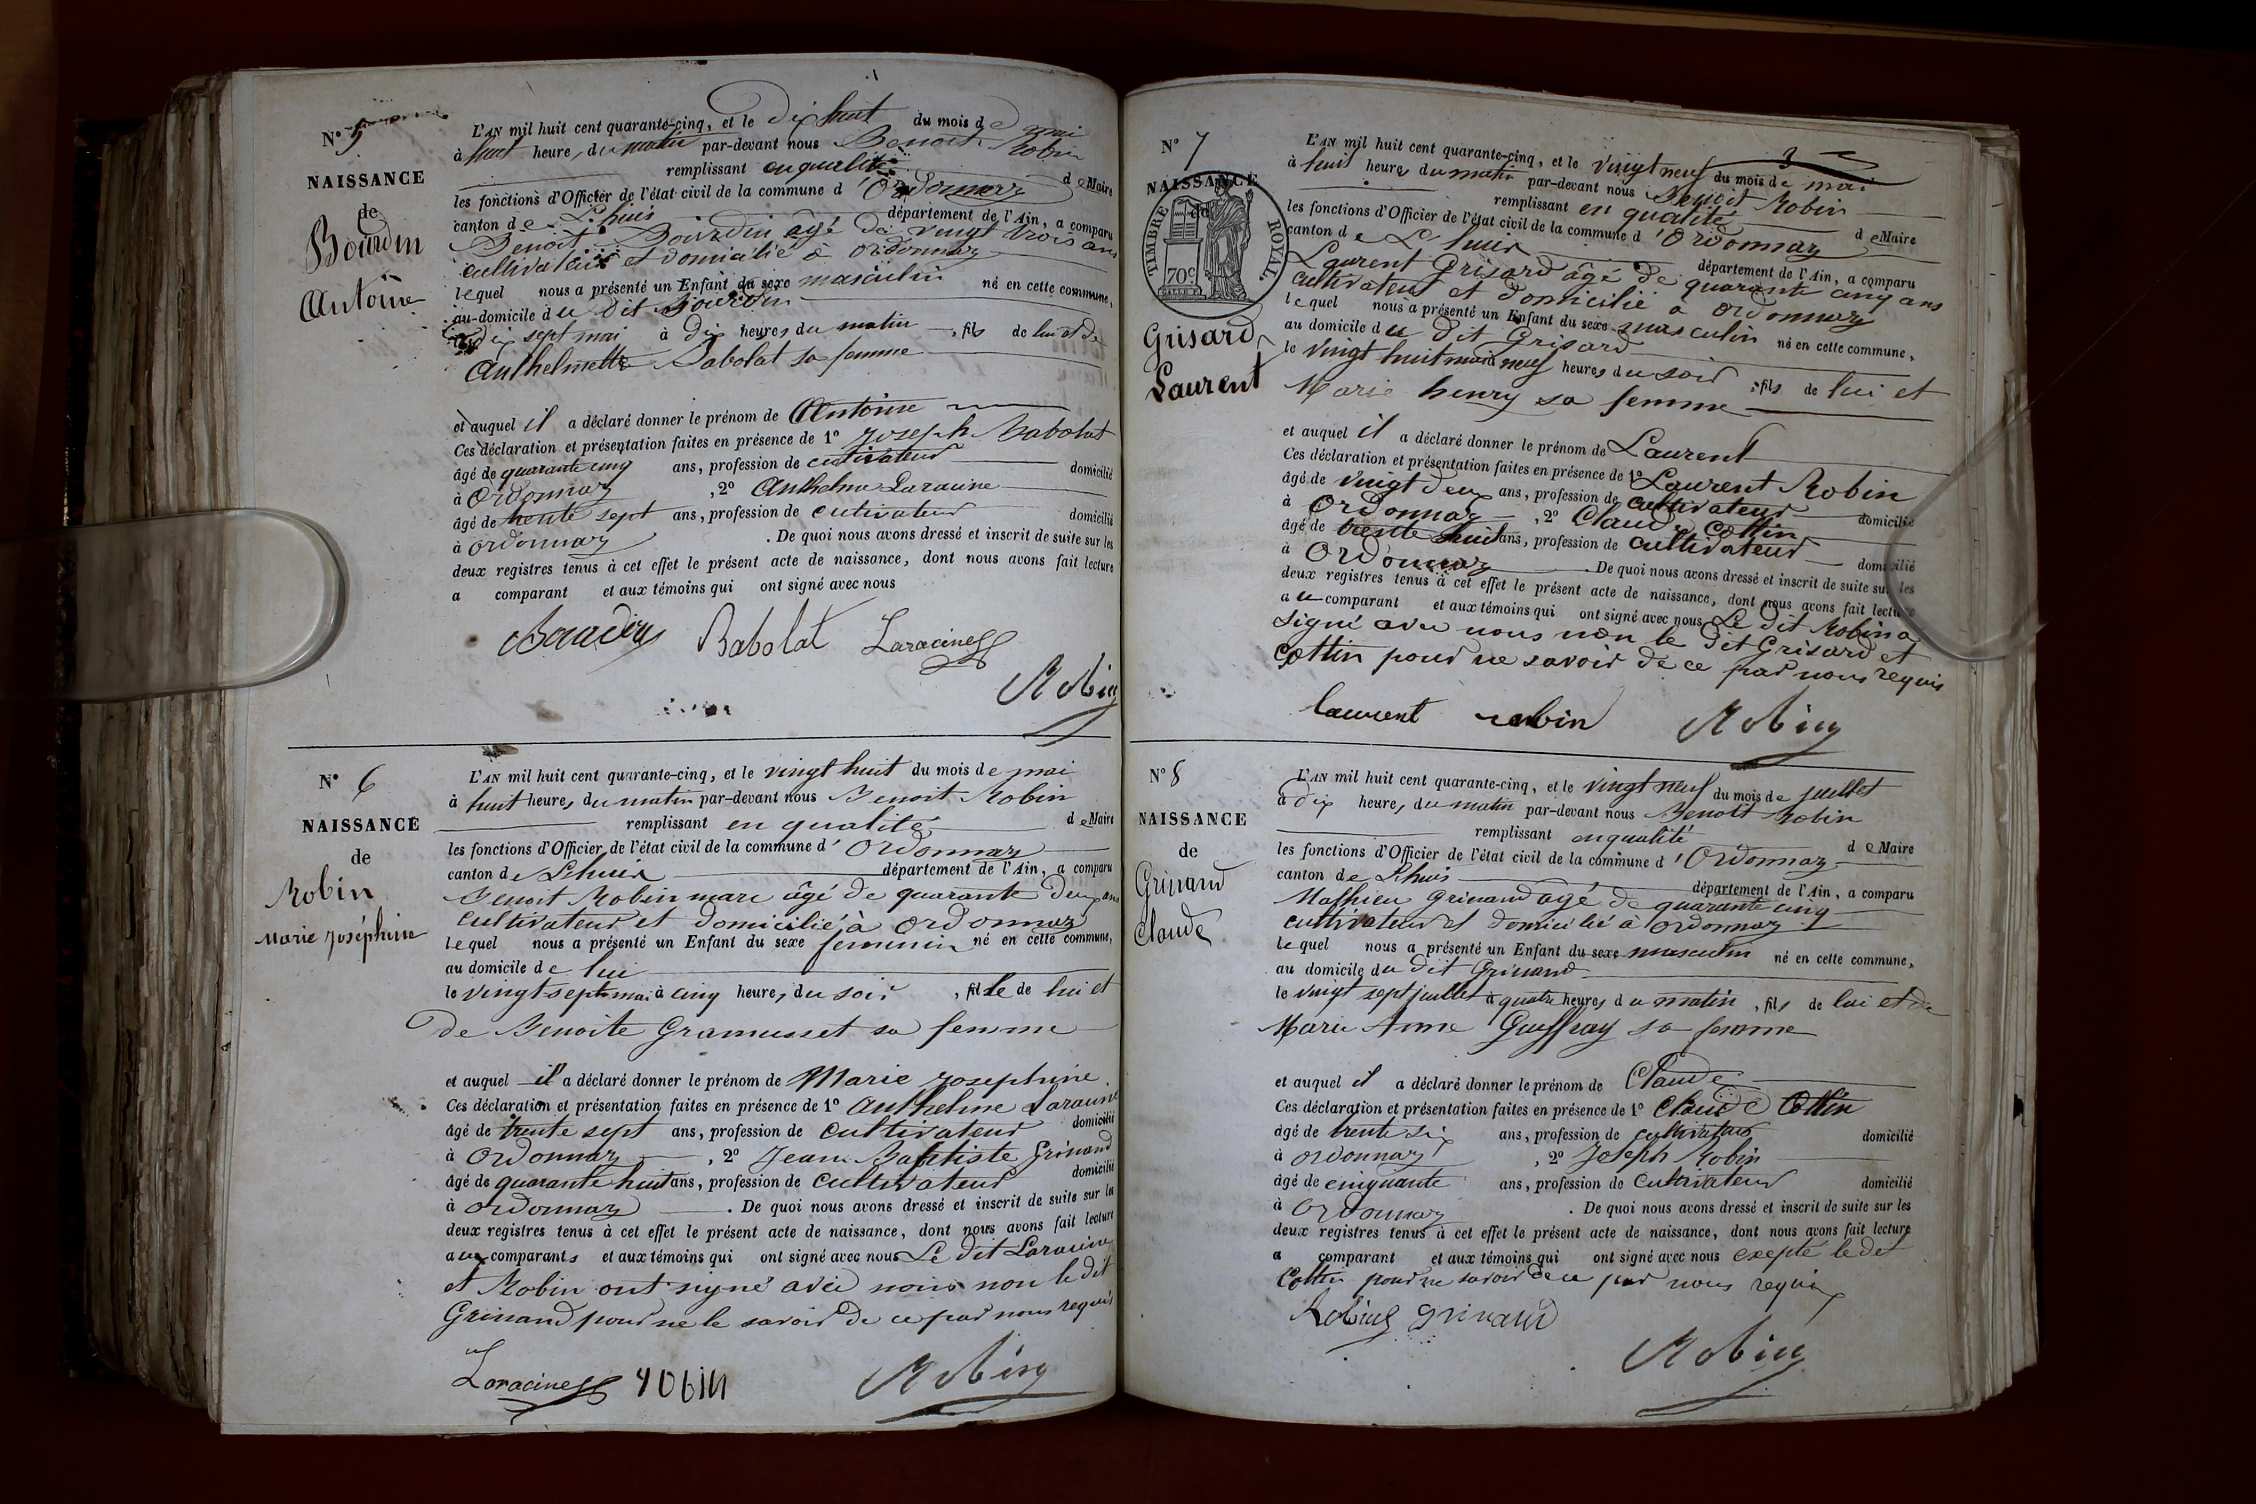 N° 5
NAISSANCE
de
Bourdin
Antoine
L'AN mil huit cent quarante-cinq, et le dix huit du mois de mai
à huit heure, du matin par-devant nous Benoit Robin
remplissant en qualité de Maire
les fonctions d'Officier de l'état civil de la commune d'Ordonnaz
canton de Lhuis département de l'Ain, a comparu
Benoit Bourdin âgé de vingt trois ans
cultivateur et domicilié à Ordonnaz
lequel nous a présenté un Enfant du sexe masculin né en cette commune,
au domicile du dit Bourdin
le dix sept mai à dix heures du matin, fils de lui et de
Anthelmette Babolat sa femme
et auquel il a déclaré donner le prénom de Antoine
Ces déclaration et présentation faites en présence de 1° Joseph Babolat
âgé de quarante cinq ans, profession de cultivateur domicilié
à Ordonnaz, 2° Anthelme Laracine
âgé de trente sept ans, profession de cultivateur domicilié
à Ordonnaz. De quoi nous avons dressé et inscrit de suite sur les
deux registres tenus à cet effet le présent acte de naissance, dont nous avons fait lecture
a comparant et aux témoins qui ont signé avec nous
Bourdin Babolat Laracine
Robin
N° 6
NAISSANCE
de
Robin
Marie Joséphine
L'AN mil huit cent quarante-cinq, et le vingt huit du mois de mai
à huit heures du matin par-devant nous Benoit Robin
remplissant en qualité de Maire
les fonctions d'Officier de l'état civil de la commune d'Ordonnaz
canton de Lhuis département de l'Ain, a comparu
Benoit Robin marc âgé de quarante deux ans
cultivateur et domicilié à Ordonnaz
lequel nous a présenté un Enfant du sexe feminin né en cette commune,
au domicile de lui
le vingt sept mai à cinq heures du soir, fille de lui et
de Benoite Gramusset sa femme
et auquel il a déclaré donner le prénom de Marie Josephine
Ces déclaration et présentation faites en présence de 1° Anthelme Laracine
âgé de trente sept ans, profession de cultivateur domicilié
à Ordonnaz, 2° Jean Baptiste Grinand
âgé de quarante huit ans, profession de cultivateur domicilié
à Ordonnaz. De quoi nous avons dressé et inscrit de suite sur les
deux registres tenus à cet effet le présent acte de naissance, dont nous avons fait lecture
aux comparants et aux témoins qui ont signé avec nous Le dit Laracine
et Robin ont signé avec nous non le dit
Grinand pour ne le savoir de ce par nous requis
Laracine robin Robin
N° 7
NAISSANCE
de
TIMBRE ROYAL
70 c.
Grisard
Laurent
L'AN mil huit cent quarante-cinq, et le vingt neuf du mois de mai
à huit heures du matin par-devant nous Benoit Robin
remplissant en qualité de Maire
les fonctions d'Officier de l'état civil de la commune d'Ordonnaz
canton de Lhuis département de l'Ain, a comparu
Laurent Grisard âgé de quarante cinq ans
cultivateur et domicilié à Ordonnaz
lequel nous a présenté un Enfant du sexe masculin né en cette commune,
au domicile du dit Grisard
le vingt huit mai à neuf heures du soir, fils de lui et
Marie henry sa femme
et auquel il a déclaré donner le prénom de Laurent
Ces déclaration et présentation faites en présence de 1° Laurent Robin
âgé de vingt deux ans, profession de cultivateur domicilié
à Ordonnaz, 2° Claude Cottin
âgé de trente huit ans, profession de cultivateur
à Ordonnaz domicilié. De quoi nous avons dressé et inscrit de suite sur les
deux registres tenus à cet effet le présent acte de naissance, dont nous avons fait lecture
au comparant et aux témoins qui ont signé avec nous Le dit Robin a
signé avec nous non le dit Grisard et
Cottin pour ne savoir de ce par nous requis
laurent robin Robin
N° 8
NAISSANCE
de
Grinand
Claude
L'AN mil huit cent quarante-cinq, et le vingt neuf du mois de juillet
à dix heures du matin par-devant nous Benoit Robin
remplissant en qualité de Maire
les fonctions d'Officier de l'état civil de la commune d'Ordonnaz
canton de Lhuis département de l'Ain, a comparu
Mathieu Grinand agé de quarante cinq
cultivateur et domicilié à Ordonnaz
lequel nous a présenté un Enfant du sexe masculin né en cette commune,
au domicile du dit Grinand
le vingt sept juillet à quatre heures du matin, fils de lui et de
Marie Anne Guffray sa femme
et auquel il a déclaré donner le prénom de Claude
Ces déclaration et présentation faites en présence de 1° Claude Cottin
âgé de trente six ans, profession de cultivateur domicilié
à Ordonnaz, 2° Joseph Robin
âgé de cinquante ans, profession de cultivateur domicilié
à Ordonnaz. De quoi nous avons dressé et inscrit de suite sur les
deux registres tenus à cet effet le présent acte de naissance, dont nous avons fait lecture
a comparant et aux témoins qui ont signé avec nous excepté le dit
Cottin pour ne savoir de ce par nous requis
Robin grinand
Robin